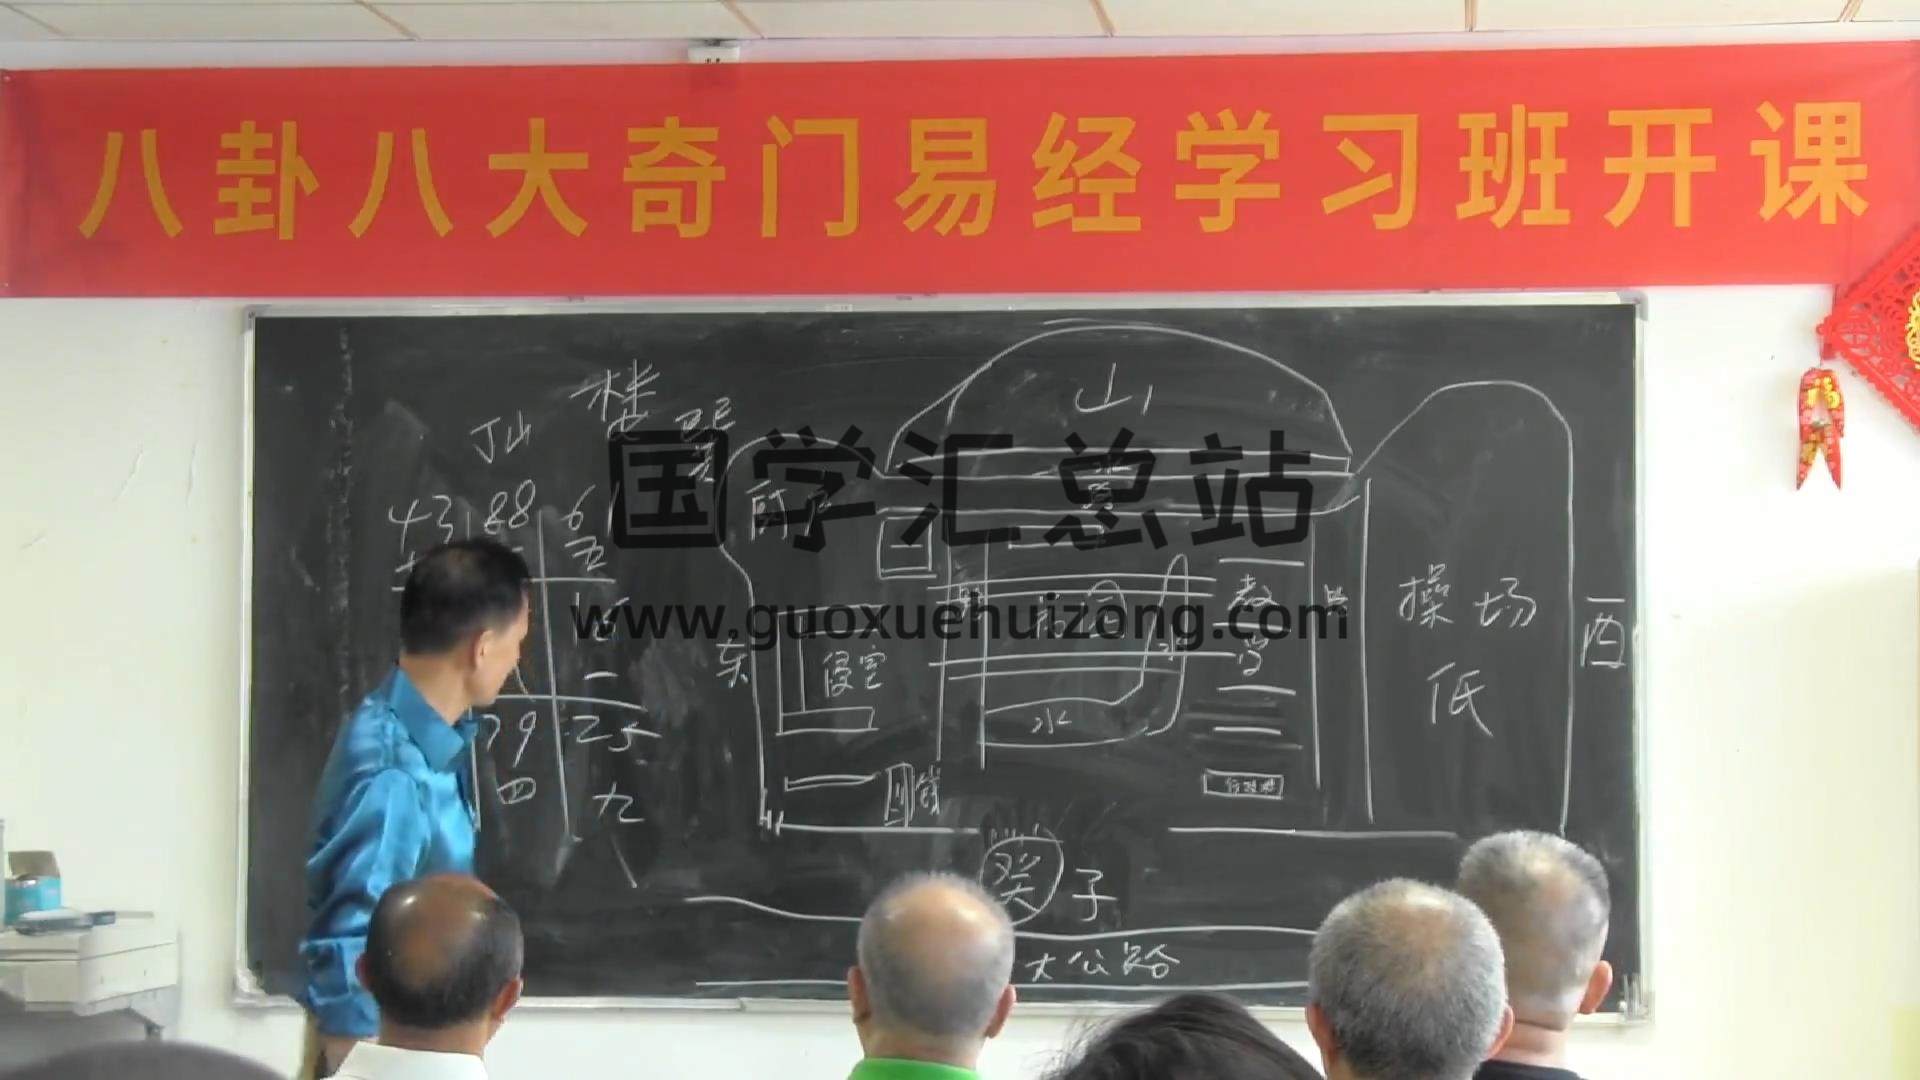 八卦八大奇门易经学习班开课
山
楼
丁山
巽
国学汇总站
43 88 6
五
www.guoxuehuizong.com
教
学
操场
酉
东
寝室
一
低
79 25
水
四
九
癸 子
大公路